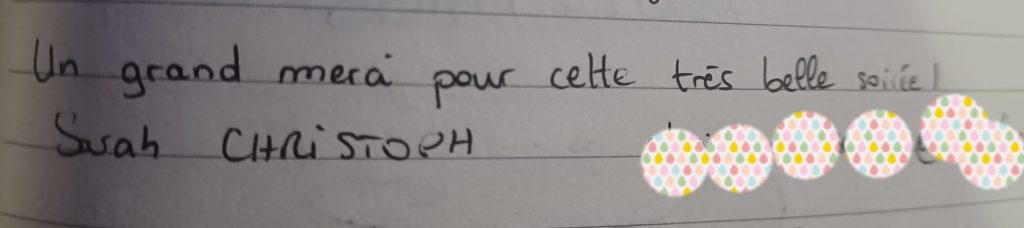 Un grand merci pour cette très belle soirée!
Sarah CHRiSTOPH